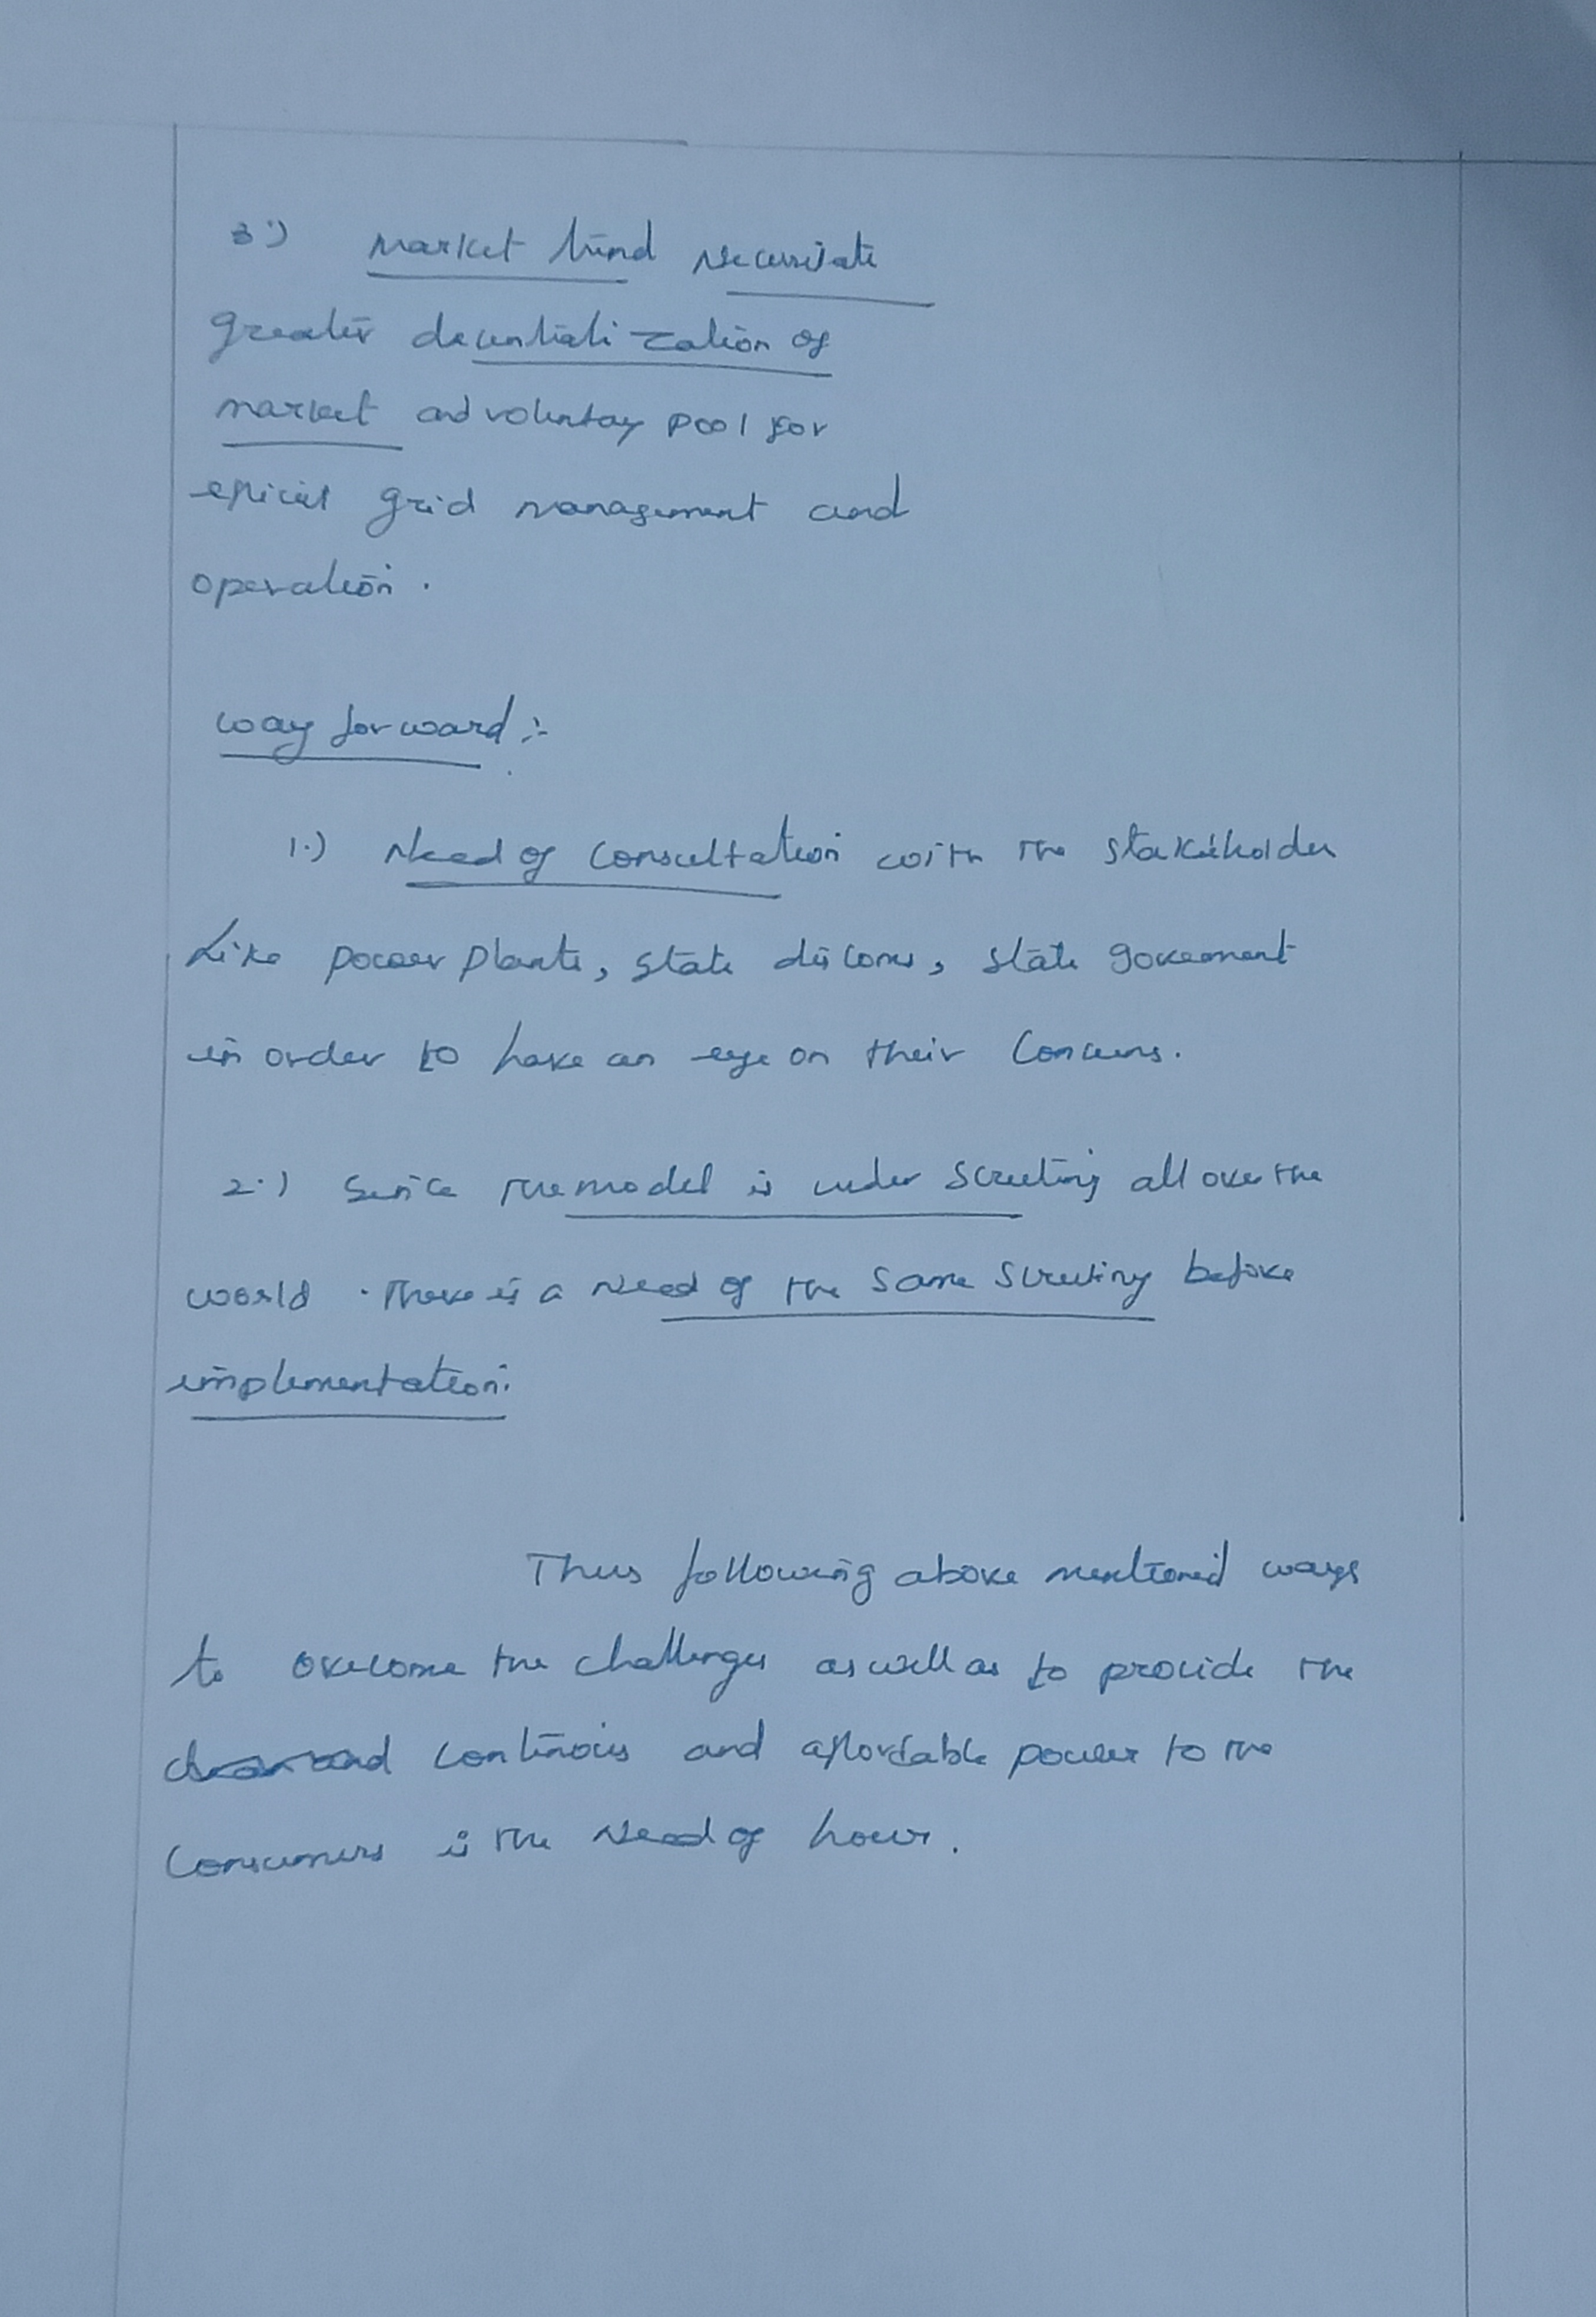 3.) Market trend necessitate
greater decentralization of
market and voluntary pool for
efficient grid management and
operation.
Way forward :-
1.) Need of consultation with the stakeholder
Like power plants, state discoms, state government
in order to have an eye on their concerns.
2.) Since the model is under scrutiny all over the
world. There is a need of the same scrutiny before
implementation.
Thus following above mentioned ways
to overcome the challenges as well as to provide the
continous and affordable power to the
consumers is the need of hour.